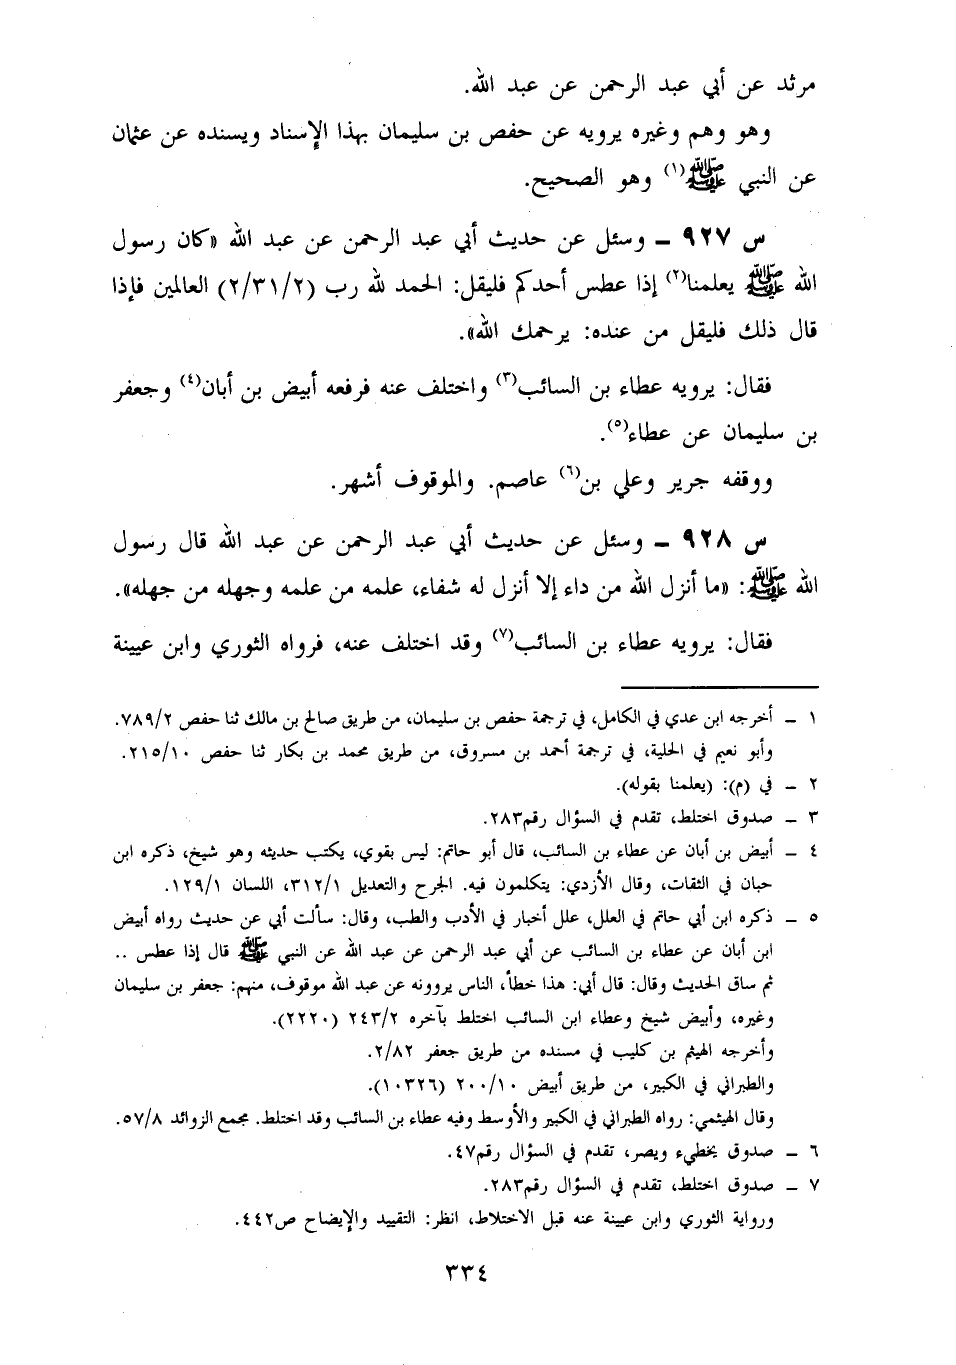 مرثد عن أبي عبد الرحمن عن عبد الله.
وهو وهم وغيره يرويه عن حفص بن سليمان بهذا الإسناد ويسنده عن عثمان
عن النبي ﷺ(١) وهو الصحيح.
س ٩٢٧ ــ وسئل عن حديث أبي عبد الرحمن عن عبد الله «كان رسول
الله ﷺ يعلمنا(٢) إذا عطس أحدكم فليقل: الحمد لله رب (٢/٣١/٢) العالمين فإذا
قال ذلك فليقل من عنده: يرحمك الله».
فقال: يرويه عطاء بن السائب(٣) واختلف عنه فرفعه أبيض بن أبان(٤) وجعفر
بن سليمان عن عطاء(٥).
ووقفه جرير وعلي بن(٦) عاصم. والموقوف أشهر.
س ٩٢٨ ــ وسئل عن حديث أبي عبد الرحمن عن عبد الله قال رسول
الله ﷺ: «ما أنزل الله من داء إلا أنزل له شفاء، علمه من علمه وجهله من جهله».
فقال: يرويه عطاء بن السائب(٧) وقد اختلف عنه، فرواه الثوري وابن عيينة
١ ــ أخرجه ابن عدي في الكامل، في ترجمة حفص بن سليمان، من طريق صالح بن مالك ثنا حفص ٧٨٩/٢.
وأبو نعيم في الحلية، في ترجمة أحمد بن مسروق، من طريق محمد بن بكار ثنا حفص ٢١٥/١٠.
٢ ــ في (م): (يعلمنا بقوله).
٣ ــ صدوق اختلط، تقدم في السؤال رقم٢٨٣.
٤ ــ أبيض بن أبان عن عطاء بن السائب، قال أبو حاتم: ليس بقوي، يكتب حديثه وهو شيخ، ذكره ابن
حبان في الثقات، وقال الأزدي: يتكلمون فيه. الجرح والتعديل ٣١٢/١، اللسان ١٢٩/١.
٥ ــ ذكره ابن أبي حاتم في العلل، علل أخبار في الأدب والطب، وقال: سألت أبي عن حديث رواه أبيض
ابن أبان عن عطاء بن السائب عن أبي عبد الرحمن عن عبد الله عن النبي ﷺ قال إذا عطس ..
ثم ساق الحديث وقال: قال أبي: هذا خطأ، الناس يروونه عن عبد الله موقوف، منهم: جعفر بن سليمان
وغيره، وأبيض شيخ وعطاء ابن السائب اختلط بآخره ٢٤٣/٢ (٢٢٢٠).
وأخرجه الهيثم بن كليب في مسنده من طريق جعفر ٢/٨٢.
والطبراني في الكبير، من طريق أبيض ٢٠٠/١٠ (١٠٣٢٦).
وقال الهيثمي: رواه الطبراني في الكبير والأوسط وفيه عطاء بن السائب وقد اختلط. مجمع الزوائد ٥٧/٨.
٦ ــ صدوق يخطيء ويصر، تقدم في السؤال رقم٤٧.
٧ ــ صدوق اختلط، تقدم في السؤال رقم٢٨٣.
ورواية الثوري وابن عيينة عنه قبل الاختلاط، انظر: التقييد والإيضاح ص٤٤٢.
٣٣٤